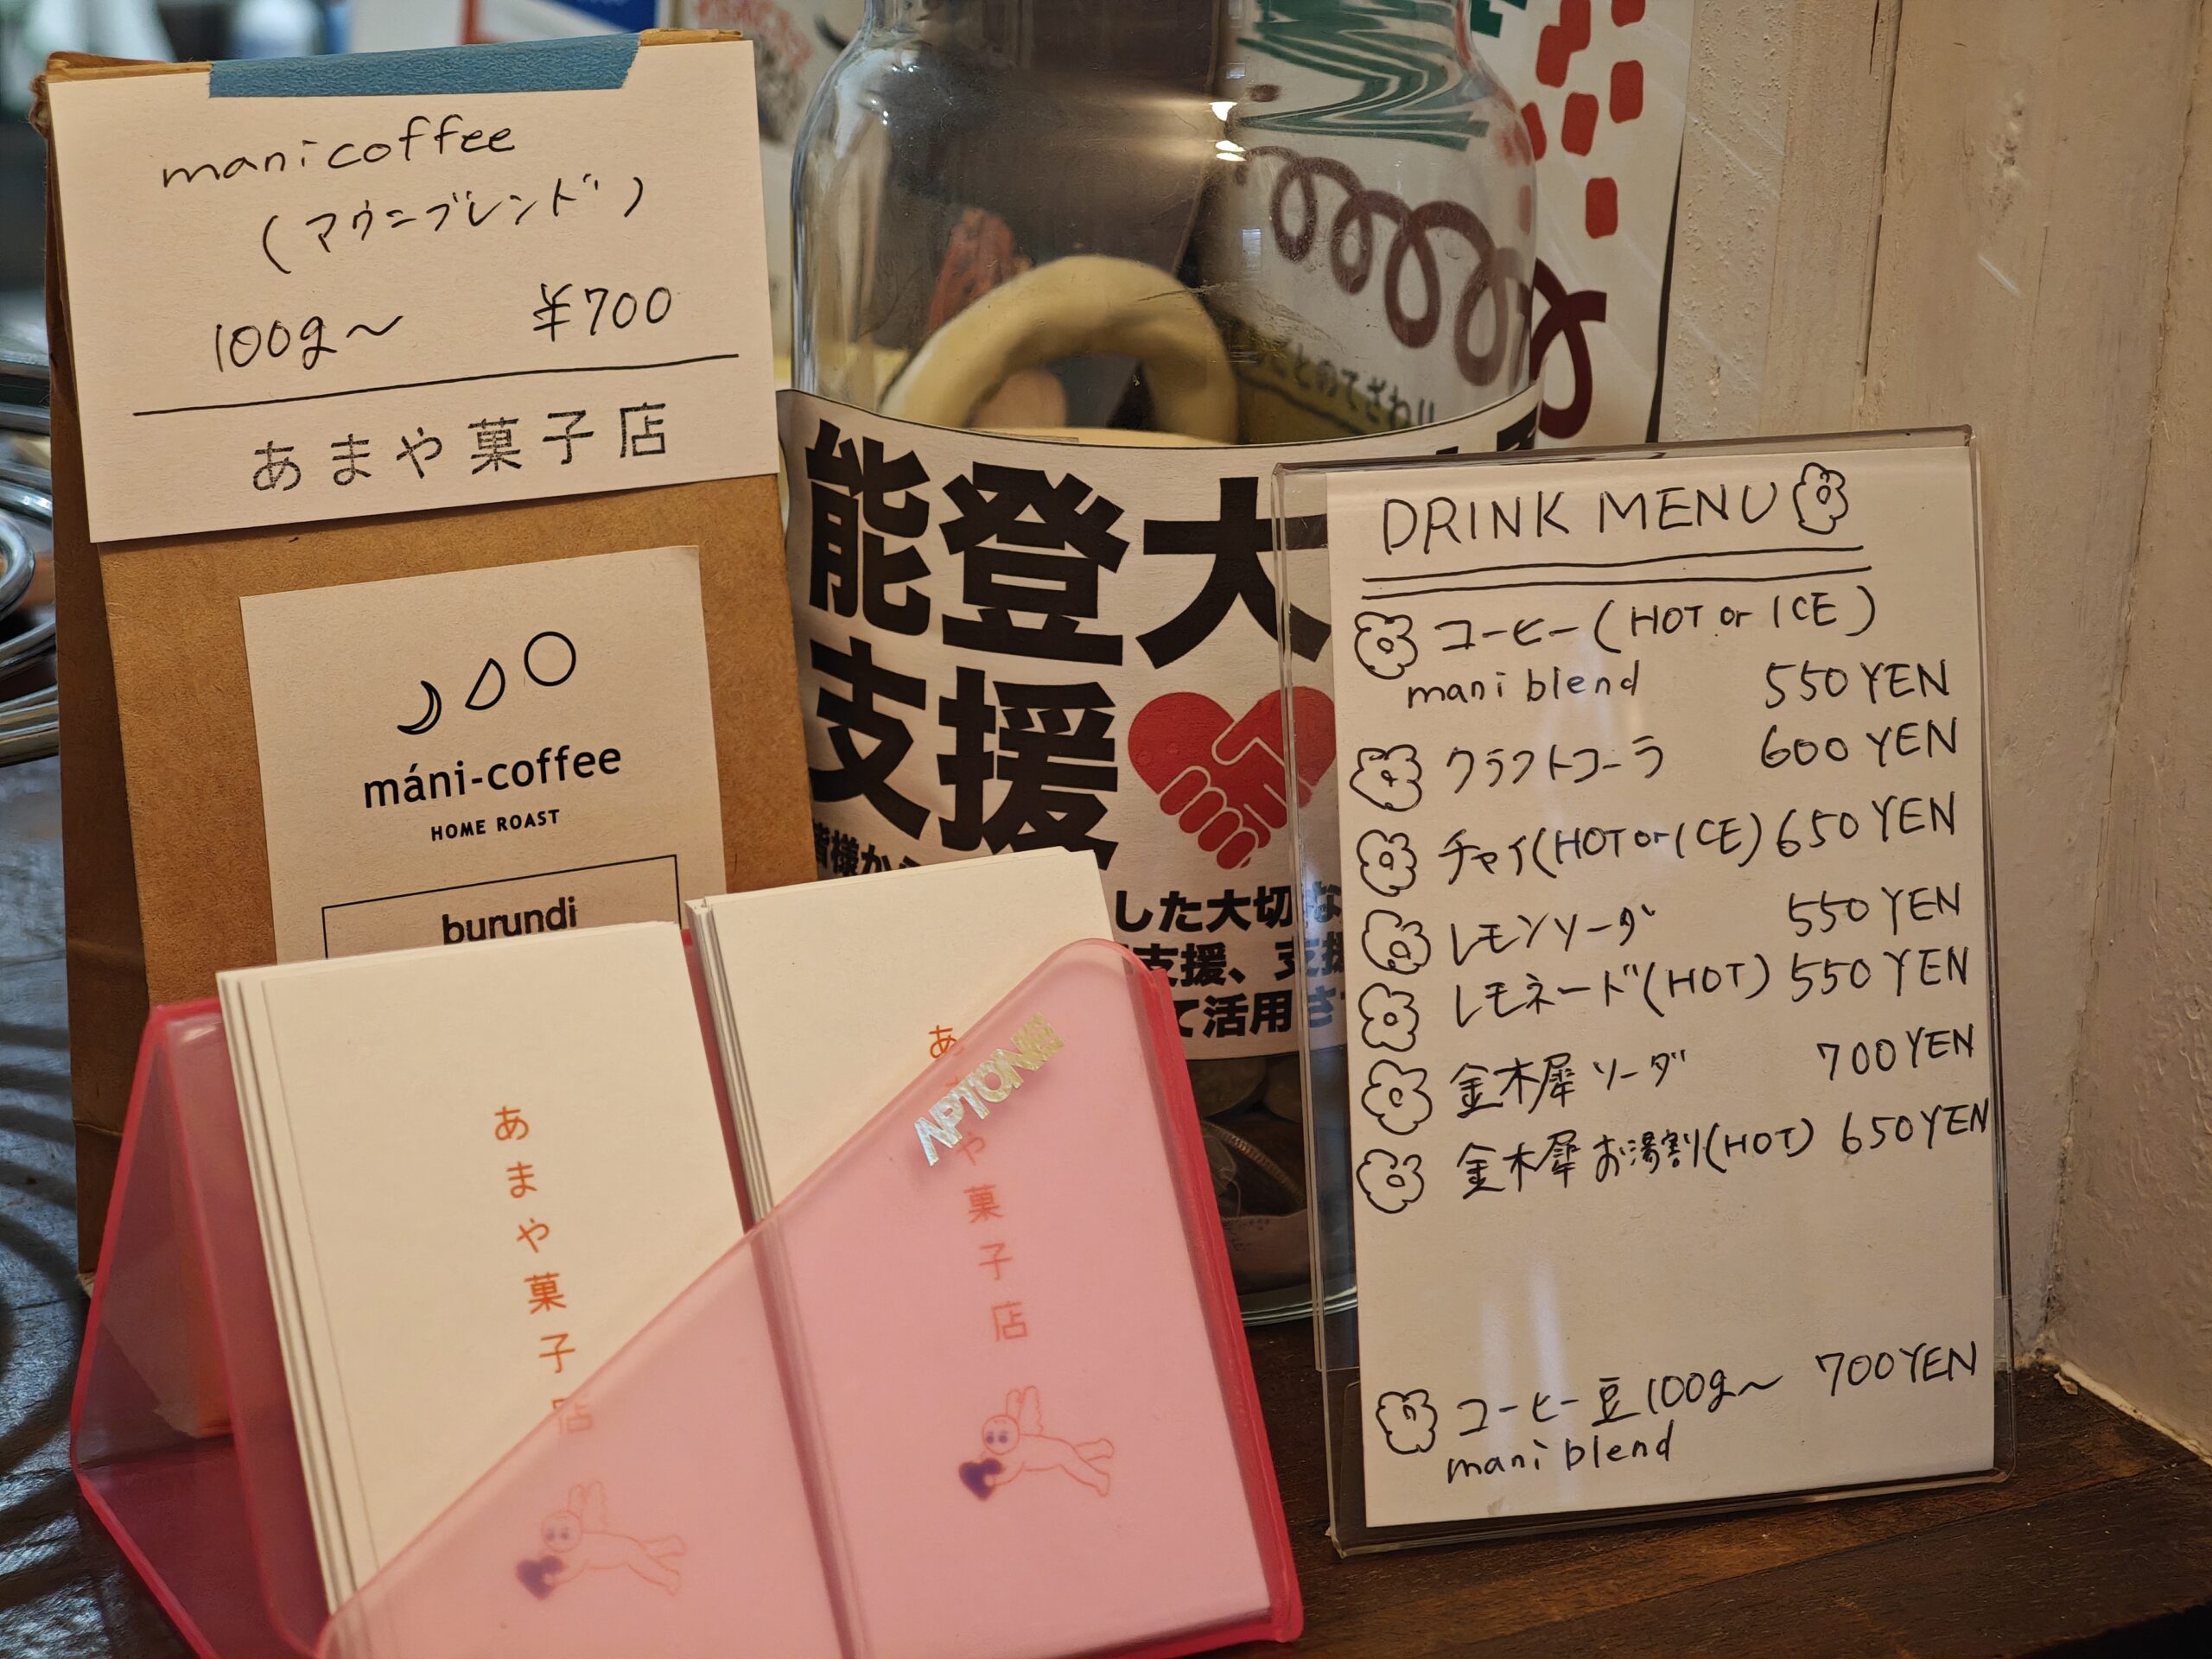 manicoffee
(マウニブレンド)
100g〜 ¥700
あまや菓子店
máni-coffee
HOME ROAST
burundi
あまや菓子店
あや菓子店
APTONE
ことのてざわり
能登大
支援
皆様か
した大切な
支援、支援
て活用さ
DRINK MENU
コーヒー(HOT or ICE)
mani blend 550YEN
クラフトコーラ 600YEN
チャイ(HOT or ICE) 650YEN
レモンソーダ 550YEN
レモネード(HOT) 550YEN
金木犀ソーダ 700YEN
金木犀お湯割(HOT) 650YEN
コーヒー豆100g〜 700YEN
mani blend